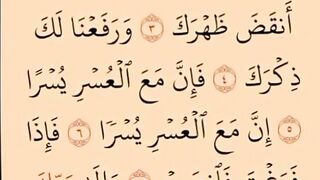 أَنقَضَ ظَهْرَكَ ٣ وَرَفَعْنَا لَكَ
ذِكْرَكَ ٤ فَإِنَّ مَعَ ٱلْعُسْرِ يُسْرًا
٥ إِنَّ مَعَ ٱلْعُسْرِ يُسْرًا ٦ فَإِذَا